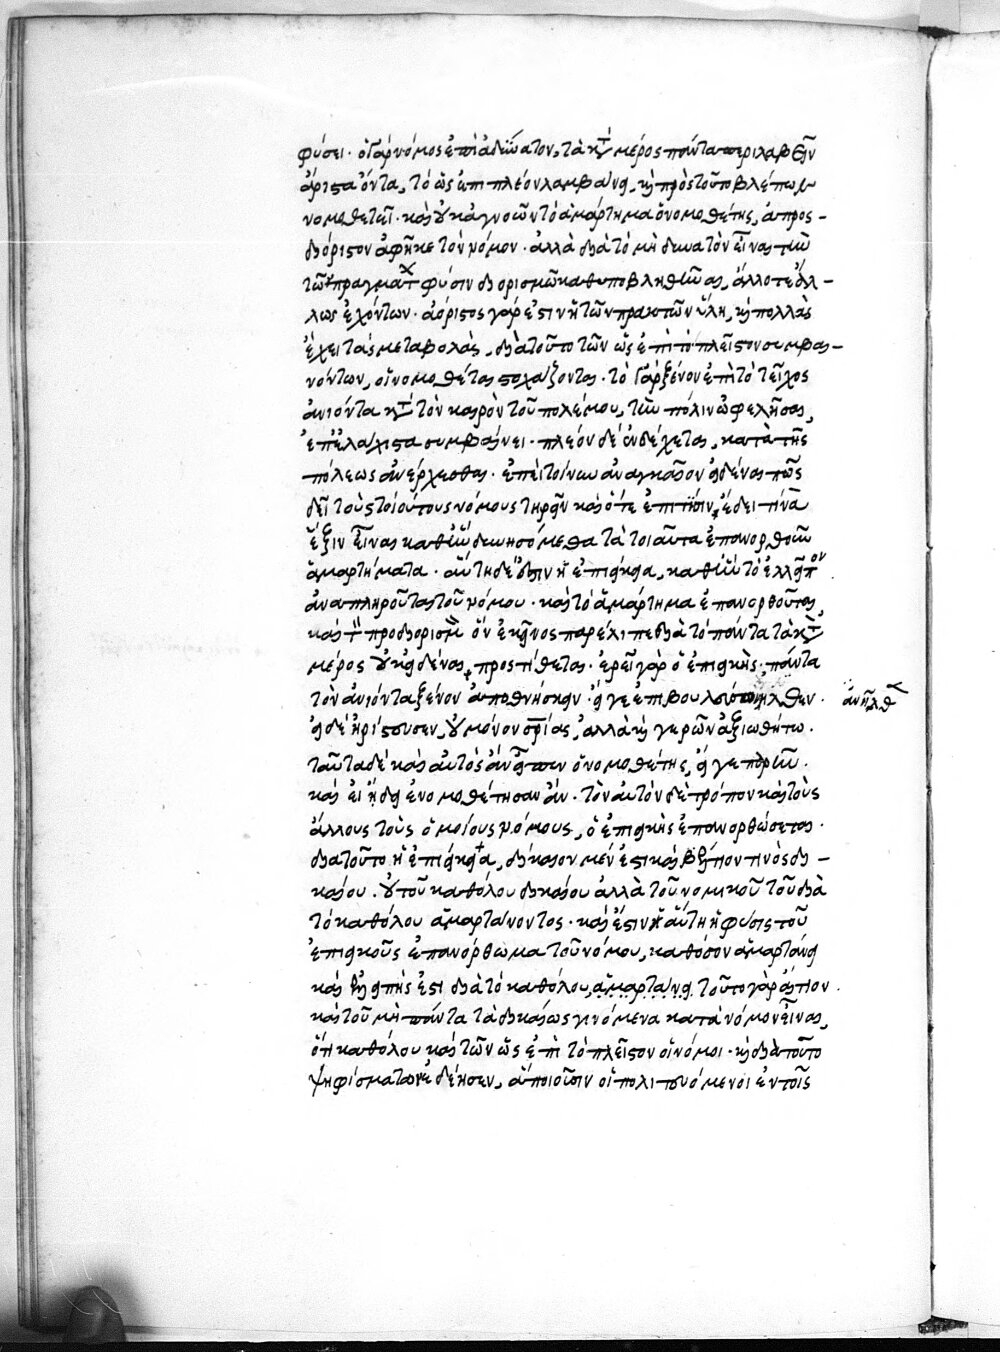 φύσει · ὁ γὰρ νόμος ἐπεὶ ἀδύνατον, τὰ κατὰ μέρος πάντα περιλαβεῖν
ἀόριστα ὄντα, τὸ ὡς ἐπιπλέον λαμβάνει, καὶ πρὸς τοῦτο βλέπων
νομοθετεῖ · καὶ οὐκ ἀγνοῶν τὸ ἁμάρτημα ὁ νομοθέτης, ἀπροσ-
διόριστον ἀφῆκε τὸν νόμον · ἀλλὰ διὰ τὸ μὴ δυνατὸν εἶναι τὴν
τῶν πραγμάτων φύσιν διορισμῶ καθυποβληθῆναι, ἄλλοτε ἄλ-
λως ἐχόντων · ἀόριστος γάρ ἐστιν ἡ τῶν πρακτῶν ὕλη, καὶ πολλὰς
ἔχει τὰς μεταβολάς, διὰ τοῦτο τῶν ὡς ἐπὶ τὸ πλεῖστον συμβαι-
νόντων, οἱ νομοθέται στοχάζονται · τὸ γὰρ ξένον ἐπὶ τὸ τεῖχος
ἀνιόντα κατὰ τὸν καιρὸν τοῦ πολέμου, τὴν πόλιν ὠφελῆσαι,
ἐπ' ἐλάχιστα συμβαίνει · πλέον δὲ ἐνδέχεται, κατὰ τῆς
πόλεως ἀνέρχεσθαι · ἐπεὶ τοίνυν ἀναγκαῖον εἰδέναι πῶς
δεῖ τοὺς τοιούτους νόμους τηρεῖν καὶ ὅτε ἔπεισιν, ἔδει τινὰ
ἕξιν εἶναι καθ' ἣν δυνησόμεθα τὰ τοιαῦτα ἐπανορθοῦν
ἁμαρτήματα · αὕτη δέ ἐστιν ἡ ἐπιείκεια, καθ' ἣν τὸ ἐλλεῖπον
ἀναπληροῦται τοῦ νόμου · καὶ τὸ ἁμάρτημα ἐπανορθοῦται,
καὶ τὸν προσδιορισμὸν ὃν ἐκεῖνος παρέλιπε διὰ τὸ πάντα τὰ κατὰ
μέρος οὐκ εἰδέναι, προστίθεται · ἐρεῖ γὰρ ὁ ἐπιεικής · πάντα
τὸν ἀνιόντα ξένον ἀποθνήσκειν · εἴ γε ἐπιβουλεύων ἦλθεν · ἀνῆλθ
εἰ δὲ ἠρίστευσεν, οὐ μόνον σωτηρίας, ἀλλὰ καὶ γερῶν ἀξιωθήτω ·
ταῦτα δὲ καὶ αὐτὸς ἂν εἶπεν ὁ νομοθέτης, εἴ γε παρῆν ·
καὶ εἰ ᾔδει ἐνομοθέτησεν ἄν · τὸν αὐτὸν δὲ τρόπον καὶ τοὺς
ἄλλους τοὺς ὁμοίους νόμους, ὁ ἐπιεικὴς ἐπανορθώσεται ·
διὰ τοῦτο ἡ ἐπιείκεια, δίκαιον μέν ἐστι καὶ βέλτιον τινὸς δι-
καίου · οὐ τοῦ καθόλου δικαίου ἀλλὰ τοῦ νομικοῦ τοῦ διὰ
τὸ καθόλου ἁμαρτάνοντος · καὶ ἔστιν αὕτη ἡ φύσις τοῦ
ἐπιεικοῦς ἐπανόρθωμα τοῦ νόμου, καθόσον ἁμαρτάνει
καὶ ἐλλειπής ἐστι διὰ τὸ καθόλου, ἁμαρτάνει τοῦτο γὰρ αἴτιον
καὶ τοῦ μὴ πάντα τὰ δικαίως γινόμενα κατὰ νόμον εἶναι,
ὅτι καθόλου καὶ τῶν ὡς ἐπὶ τὸ πλεῖστον οἱ νόμοι · καὶ διὰ τοῦτο
ψηφισμάτων ἐδέησεν, ἃ ποιοῦσιν οἱ πολιτευόμενοι ἐν τοῖς